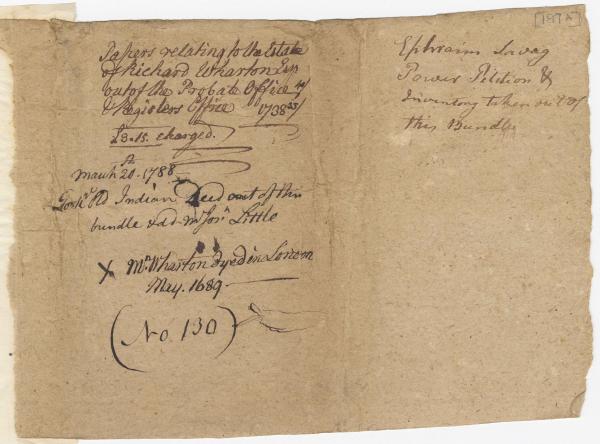 Papers relating to the Estate
of Richard Wharton Esqr
out of the Probate Office
& Registers Office 1738
£3.15. charged.
March 20. 1788
Old Indian Deed out of this
bundle & dd. Mr. Jona. Little
X Mr. Wharton dyed in London
May. 1689
(No. 130)
[187A]
Ephraim Savag
Power Petition &
Inventory taken out of
this Bundle